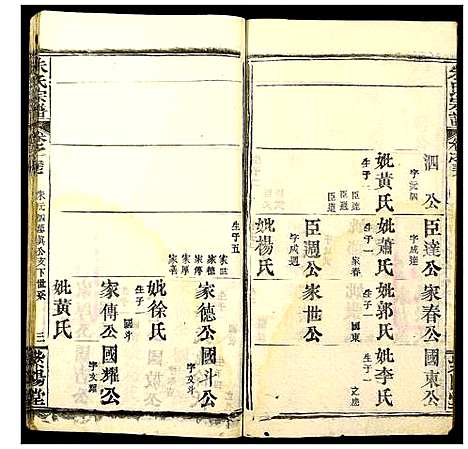 朱氏宗譜
泗公
字元泗
臣達公
字成達
家春公
國東公
妣黃氏
生子二
臣達
臣週
妣蕭氏
生子一
家春
妣郭氏
生子一
國東
妣李氏
生子一
臣週公
字成週
家世公
妣楊氏
生子五
家德
家傳
家厚
家義
家德公
國斗公
字文斗
妣徐氏
生子一
國斗
家傳公
國耀公
字文耀
妣黃氏
朱氏宗譜
三
紫陽堂